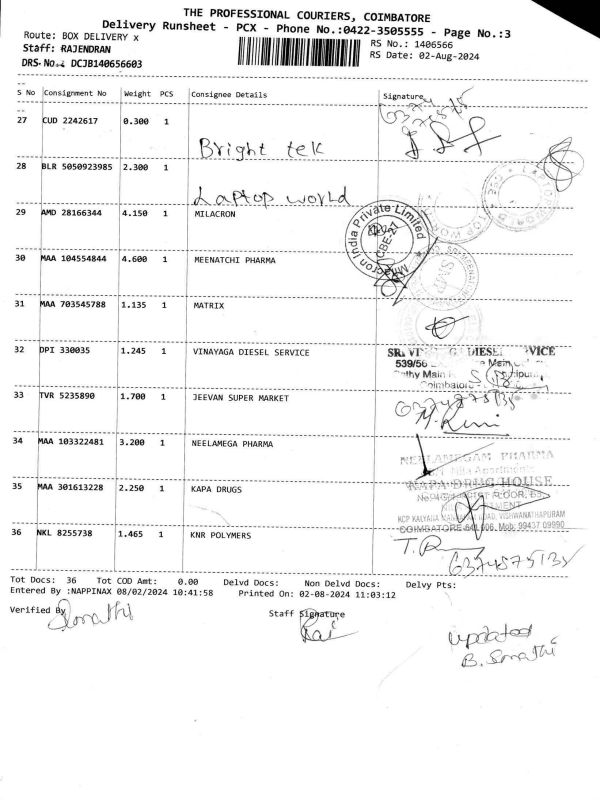 THE PROFESSIONAL COURIERS, COIMBATORE
Delivery Runsheet - PCX - Phone No.:0422-3505555 - Page No.:3
Route: BOX DELIVERY x
RS No.: 1406566
Staff: RAJENDRAN
RS Date: 02-Aug-2024
DRS No.: DCJB140656603
S No Consignment No Weight PCS Consignee Details Signature
27 CUD 2242617 0.300 1
Bright tek
28 BLR 5050923985 2.300 1
Laptop world
29 AMD 28166344 4.150 1 MILACRON
Milacron India Private Limited
CBE-27
30 MAA 104554844 4.600 1 MEENATCHI PHARMA
31 MAA 703545788 1.135 1 MATRIX
32 DPI 330035 1.245 1 VINAYAGA DIESEL SERVICE
DIESEL
539/56
Coimbatore
33 TVR 5235890 1.700 1 JEEVAN SUPER MARKET
34 MAA 103322481 3.200 1 NEELAMEGA PHARMA
NEELAMEGAM PHARMA
35 MAA 301613228 2.250 1 KAPA DRUGS
KAPA DRUG HOUSE
FLOOR, 63,
KCP KALYANA ROAD, VISHWANATHAPURAM
COIMBATORE Mob: 99437 09990
36 NKL 8255738 1.465 1 KNR POLYMERS
6374575135
Tot Docs: 36 Tot COD Amt: 0.00 Delvd Docs: Non Delvd Docs: Delvy Pts:
Entered By :NAPPINAX 08/02/2024 10:41:58 Printed On: 02-08-2024 11:03:12
Verified By
Staff Signature
updated
B. Sonathi